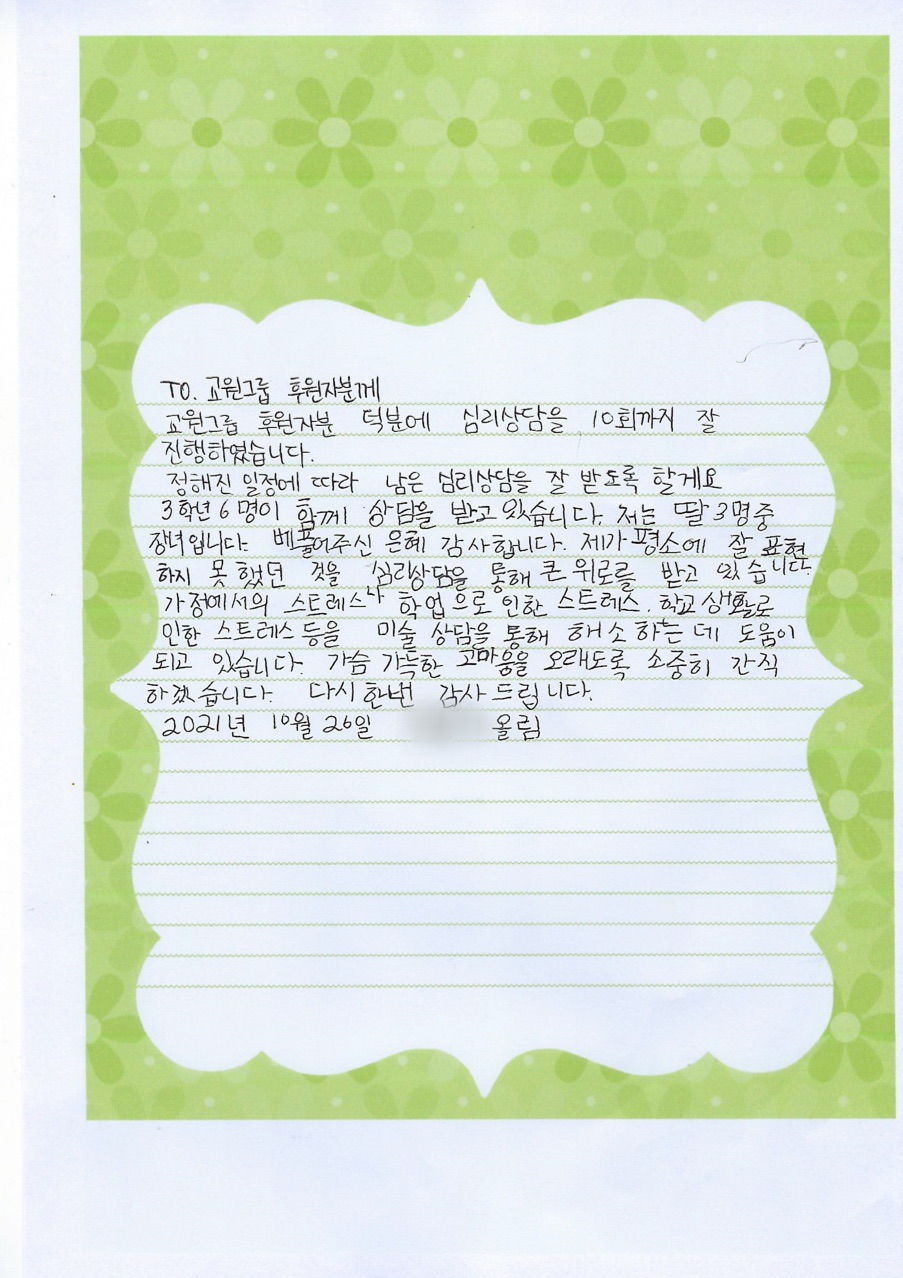 TO. 교원그룹 후원자분께
교원그룹 후원자분 덕분에 심리상담을 10회까지 잘
진행하였습니다.
정해진 일정에 따라 남은 심리상담을 잘 받도록 할게요
3학년 6명이 함께 상담을 받고 있습니다. 저는 딸 3명 중
장녀입니다. 베풀어주신 은혜 감사합니다. 제가 평소에 잘 표현
하지 못했던 것을 심리상담을 통해 큰 위로를 받고 있습니다.
가정에서의 스트레스나 학업으로 인한 스트레스, 학교생활로
인한 스트레스 등을 미술 상담을 통해 해소하는 데 도움이
되고 있습니다. 가슴 가득한 고마움을 오래도록 소중히 간직
하겠습니다. 다시 한번 감사드립니다.
2021년 10월 26일 올림